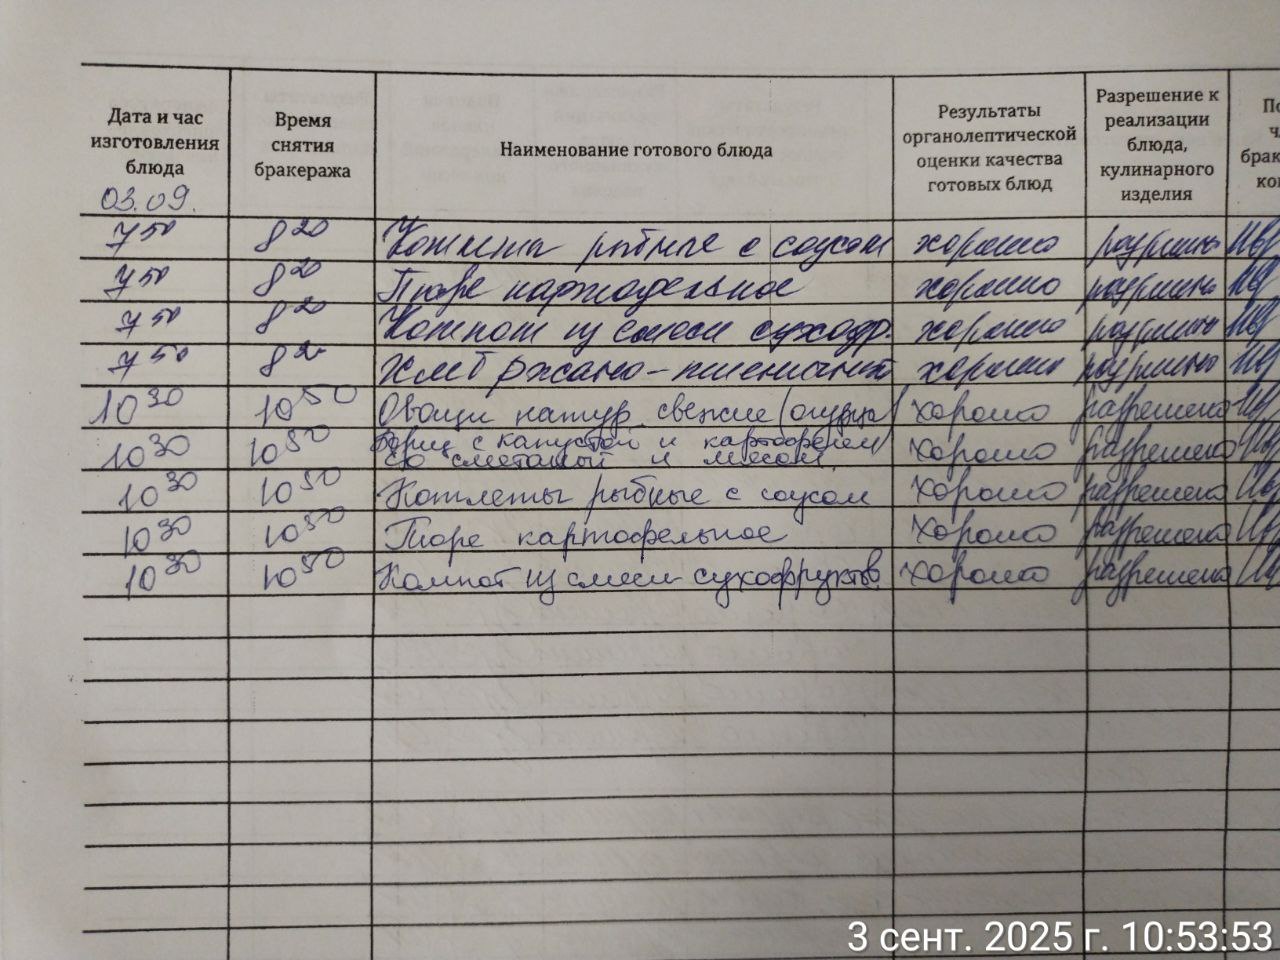 Дата и час изготовления блюда
Время снятия бракеража
Наименование готового блюда
Результаты органолептической оценки качества готовых блюд
Разрешение к реализации блюда, кулинарного изделия
03.09.
7 50 8 20 Котлеты рыбные с соусом хорошо разрешено
7 50 8 20 Пюре картофельное хорошо разрешено
7 50 8 20 Компот из смеси сухофр. хорошо разрешено
7 50 8 20 Хлеб ржано-пшеничный хорошо разрешено
10 30 10 50 Овощи натур. свежие (огурцы) хорошо разрешено
10 30 10 50 Борщ с капустой и картофелем со сметаной и мясом. хорошо разрешено
10 30 10 50 Котлеты рыбные с соусом хорошо разрешено
10 30 10 50 Пюре картофельное хорошо разрешено
10 30 10 50 Компот из смеси сухофруктов. хорошо разрешено
3 сент. 2025 г. 10:53:53